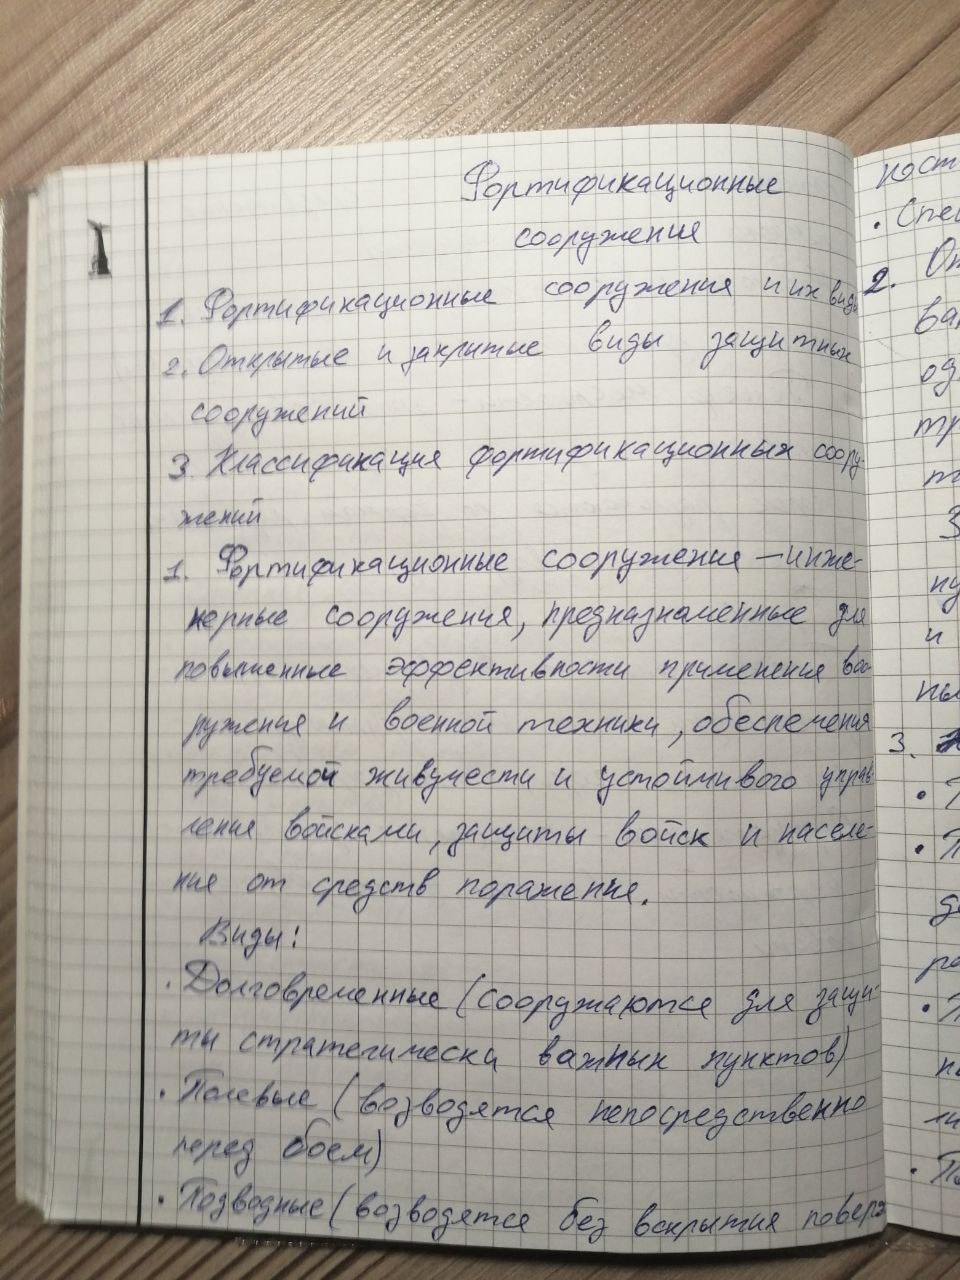 Фортификационные
сооружения
1. Фортификационные сооружения и их виды
2. Открытые и закрытые виды защитных
сооружений
3. Классификация фортификационных соору-
жений
1. Фортификационные сооружения — инже-
нерные сооружения, предназнаменные для
повышенные эффективности применения воо-
ружения и военной техники, обеспечения
требуемой живучести и устойчивого управ-
ления войсками, защиты войск и населе-
ния от средств поражения.
Виды:
· Долговременные (сооружаются для защи-
ты стратегически важных пунктов)
· Полевые (возводятся непосредственно
перед боем)
· Подводные (возводятся без вскрытия поверх
ност
· Спец
2.
3.
и